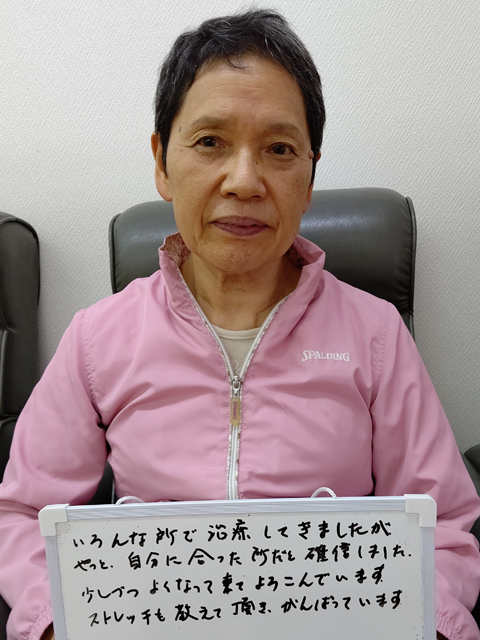 SPALDING
いろんな所で治療してきましたが
やっと、自分に合った所だと確信しました.
少しづつよくなって来てよろこんでいます
ストレッチも教えて頂き、がんばっています